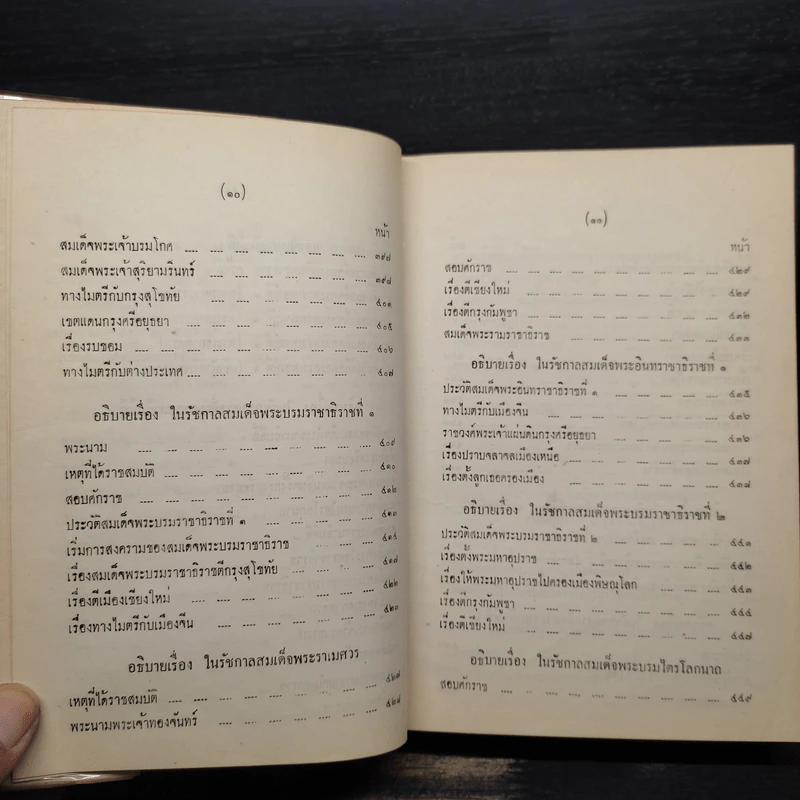 (๑๐)
หน้า
สมเด็จพระเจ้าบรมโกศ .... .... .... .... .... .... .... ๓๙๗
สมเด็จพระเจ้าสุริยามรินทร์ .... .... .... .... .... .... ๓๙๘
ทางไมตรีกับกรุงสุโขทัย .... .... .... .... .... .... .... ๔๐๑
เขตแดนกรุงศรีอยุธยา .... .... .... .... .... .... .... ๔๐๕
เรื่องรบขอม .... .... .... .... .... .... .... .... ๔๐๖
ทางไมตรีกับต่างประเทศ .... .... .... .... .... .... ๔๐๗
อธิบายเรื่อง ในรัชกาลสมเด็จพระบรมราชาธิราชที่ ๑
พระนาม .... .... .... .... .... .... .... .... ๔๐๙
เหตุที่ได้ราชสมบัติ .... .... .... .... .... .... .... ๔๑๐
สอบศักราช .... .... .... .... .... .... .... .... ๔๑๒
ประวัติสมเด็จพระบรมราชาธิราชที่ ๑ .... .... .... .... ๔๑๓
เริ่มการสงครามของสมเด็จพระบรมราชาธิราช .... .... .... ๔๑๔
เรื่องสมเด็จพระบรมราชาธิราชตีกรุงสุโขทัย .... .... .... ๔๑๗
เรื่องตีเมืองเชียงใหม่ .... .... .... .... .... .... ๔๒๒
เรื่องทางไมตรีกับเมืองจีน .... .... .... .... .... .... ๔๒๓
อธิบายเรื่อง ในรัชกาลสมเด็จพระราเมศวร
เหตุที่ได้ราชสมบัติ .... .... .... .... .... .... .... ๔๒๗
พระนามพระเจ้าทองจันทร์ .... .... .... .... .... .... ๔๒๘
(๑๑)
หน้า
สอบศักราช .... .... .... .... .... .... .... ๔๒๙
เรื่องตีเชียงใหม่ .... .... .... .... .... .... .... ๔๒๙
เรื่องตีกรุงกัมพูชา .... .... .... .... .... .... ๔๓๒
สมเด็จพระรามราชาธิราช .... .... .... .... .... ๔๓๓
อธิบายเรื่อง ในรัชกาลสมเด็จพระอินทราชาธิราชที่ ๑
ประวัติสมเด็จพระอินทราชาธิราชที่ ๑ .... .... .... .... ๔๓๕
ทางไมตรีกับเมืองจีน .... .... .... .... .... .... ๔๓๖
ราชวงศ์พระเจ้าแผ่นดินกรุงศรีอยุธยา .... .... .... .... ๔๓๖
เรื่องปราบจลาจลเมืองเหนือ .... .... .... .... .... ๔๓๗
เรื่องตั้งลูกเธอครองเมือง .... .... .... .... .... ๔๓๘
อธิบายเรื่อง ในรัชกาลสมเด็จพระบรมราชาธิราชที่ ๒
ประวัติสมเด็จพระบรมราชาธิราชที่ ๒ .... .... .... .... ๔๔๑
เรื่องตั้งพระมหาอุปราช .... .... .... .... .... .... ๔๔๒
เรื่องให้พระมหาอุปราชไปครองเมืองพิษณุโลก .... .... .... ๔๔๓
เรื่องตีกรุงกัมพูชา .... .... .... .... .... .... ๔๔๔
เรื่องตีเชียงใหม่ .... .... .... .... .... .... ๔๔๗
อธิบายเรื่อง ในรัชกาลสมเด็จพระบรมไตรโลกนาถ
สอบศักราช .... .... .... .... .... .... .... ๔๔๙